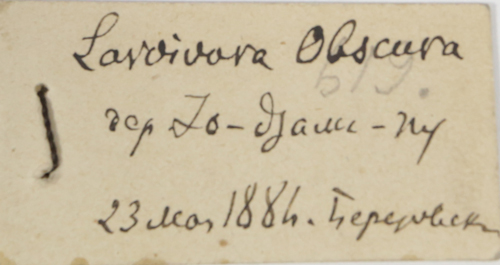 Larvivora Obscura
619.
дер Хо-дзаи-пу
23 мая 1884. Березовск